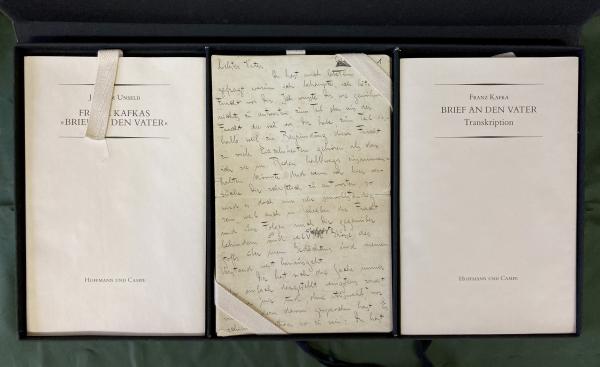 J
Unseld
FRANZ KAFKAS
»BRIEF AN DEN VATER«
HOFFMANN UND CAMPE
Liebster Vater
1
Du hast mich letzthin
gefragt, warum ich behaupte, ich hätte
Furcht vor Dir. Ich wusste Dir, wie gewöhnlich,
nichts zu antworten, zum Teil eben aus der
Furcht, die ich vor Dir habe, zum Teil des-
halb, weil zur Begründung dieser Furcht
zu viele Einzelnheiten gehören, als dass
ich sie im Reden halbwegs zusammen-
halten könnte. Und wenn ich hier ver-
suche Dir schriftlich zu antworten, so
wird es doch nur sehr unvollständig
sein, weil auch im Schreiben die Furcht
und ihre Folgen mich Dir gegenüber
behindern und weil die Grösse des
Stoffs über mein Gedächtnis und meinen
Verstand weit hinausgeht.
Dir hat sich die Sache immer
einfach dargestellt, wenigstens soweit
mir und, ohne Auswahl, vor
davon gesprochen hast. Es
so zu sein: Du hast
FRANZ KAFKA
BRIEF AN DEN VATER
Transkription
HOFFMANN UND CAMPE